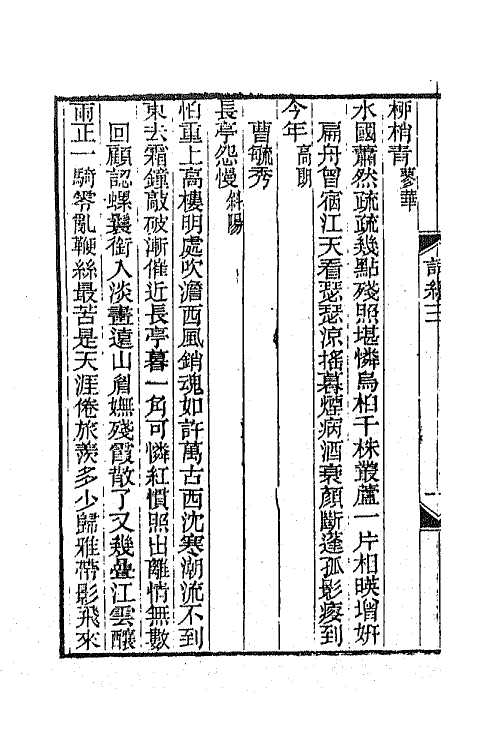 柳梢青 蓼華
水國蕭然疏疏幾點殘照堪憐烏桕千株叢蘆一片相暎增妍
扁舟曾宿江天看瑟瑟涼搖暮煙病酒衰顏斷蓬孤影瘦到
今年 高朗
曹毓秀
長亭怨慢 斜陽
怕重上高樓明處吹澹西風銷魂如許萬古西沈寒潮流不到
東去霜鐘敲破漸催近長亭暮一角可憐紅慣照出離情無數
回顧認螺鬟銜入淡畫遠山眉嫵殘霞散了又幾疊江雲釀
雨正一騎零亂鞭絲最苦是天涯倦旅羨多少歸雅帶影飛來
三